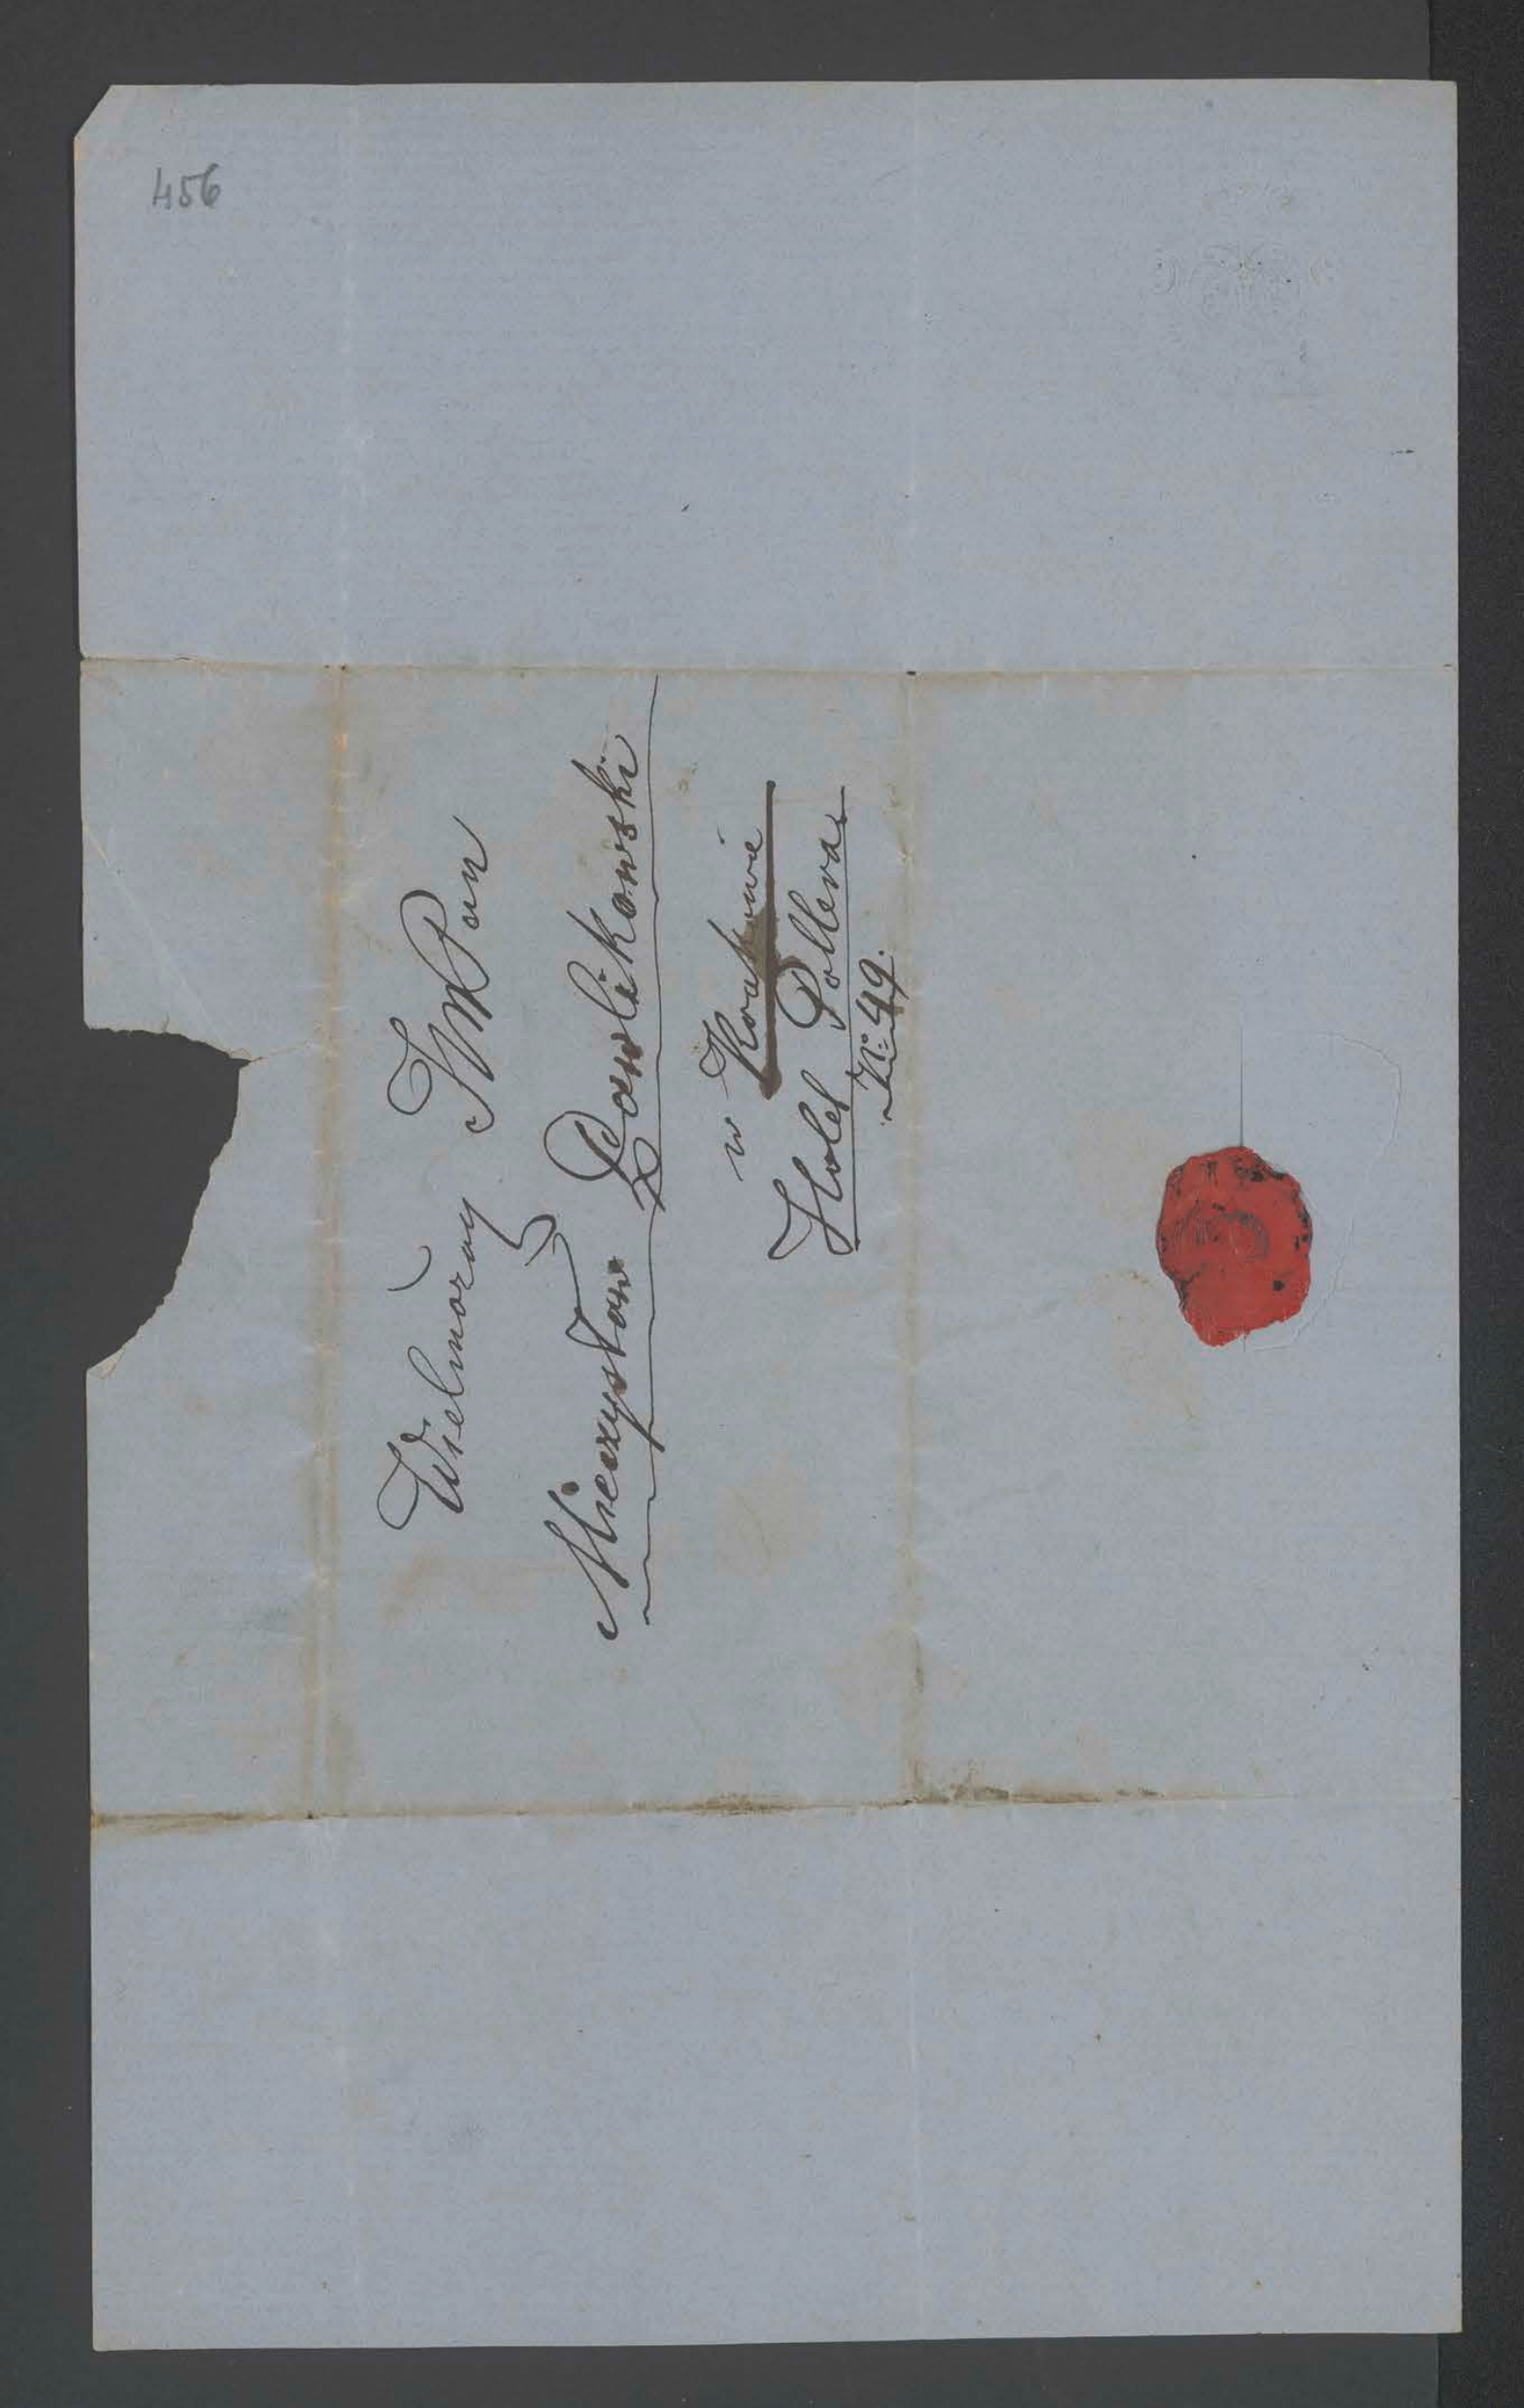 456
Wielmożny JWPan
Mieczysław Pawlikowski
w Krakowie
Hotel Pollera
No 49.